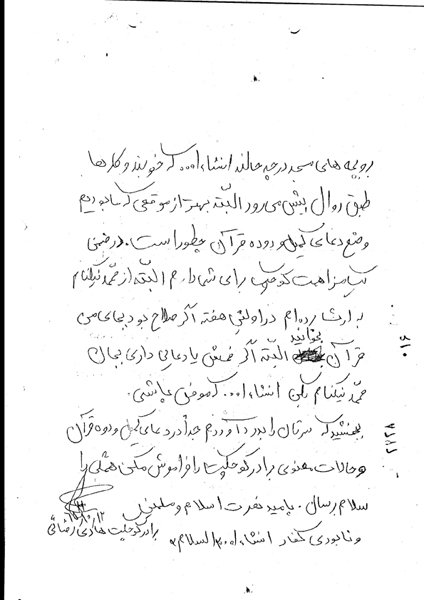 و بچه های مسجد در چه حالند انشاءا... که خوبند و کارها
طبق روال پیش می رود البتّه بهتر از موقعی که ما بودیم
وضع دعای کمیل و دوره قرآن چطور است. در ضمن
یک مزاحمت کوچک برای شما دارم البتّه از محمد نیکنام
به ارث برده ام در اولین هفته اگر صلاح بود بجای من
قرآن بخوانید البتّه اگر فحش یا دعایی داری بجان
محمد نیکنام بکن انشاءا... که موفق باشی.
ببخشید که سرتان را بدرد آوردم ضمناً در دعای کمیل و دوره قرآن
و حالات معنوی برادر کوچکت را فراموش مکن همگی را
سلام برسان. بامید نصرت اسلام و مسلمین
و نابودی کفار انشاءا... والسلام
برادر کوچکت هادی رضائی
016
2128